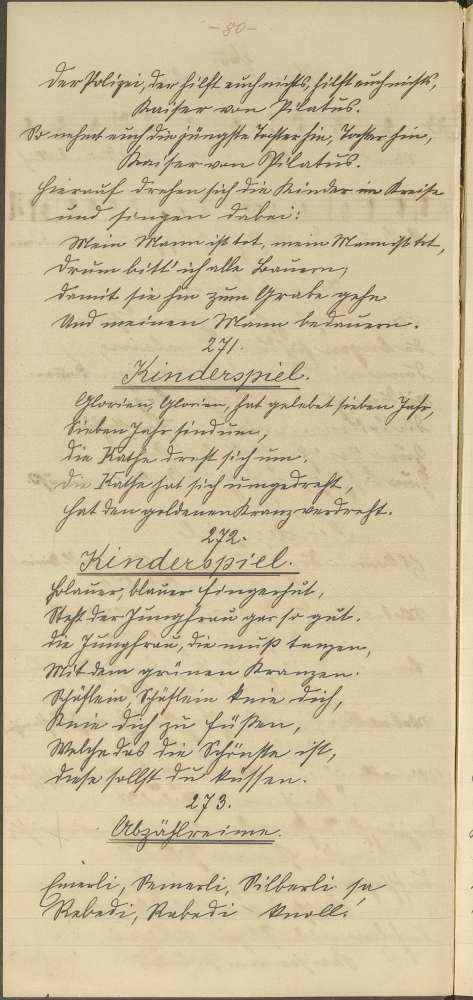 -80-
Der Polizei, der hilft euch nichts, hilft euch nichts,
Kaiser von Pilatus.
So nehmt euch die jüngste Tochter hin, Tochter hin,
Kaiser von Pilatus.
Hierauf drehen sich die Kinder im Kreise
und singen dabei:
Mein Mann ist tot, mein Mann ist tot,
Drum bitt' ich alle Bauern,
Damit sie hin zum Grabe gehn
Und meinen Mann bedauern.
271.
Kinderspiel.
Glorien, Glorien, hat gelebet sieben Jahr,
Sieben Jahr sind um,
Die Kathe dreht sich um.
Die Kathe hat sich umgedreht,
Hat den goldenen Kranz verdreht.
272.
Kinderspiel.
Blauer, blauer Fingerhut,
Steht der Jungfrau gar so gut.
Die Jungfrau, die muß tanzen,
Mit dem grünen Kranzen.
Schäflein, Schäflein knie dich,
Knie dich zu Füßen,
Welche das die Schönste ist,
Diese sollst du küssen.
273.
Abzählreime.
Emerli, Semerli, Silberli sa
Rebedi, Rabedi knoll.